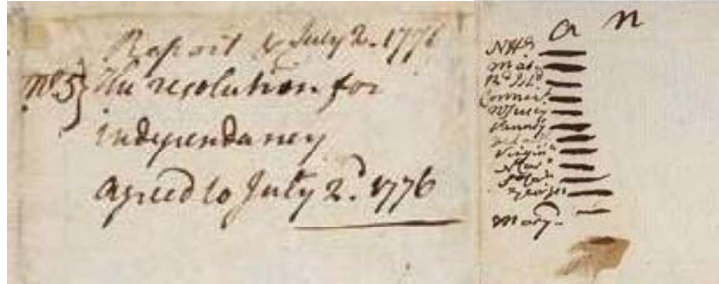 Report & July 2. 1776
No. 5} The resolution for
independancy
agreed to July 2d. 1776
a n
NHr
Mas.
Rd. Isld.
Connect.
NJersey
Virginia
Georgia
Mary.